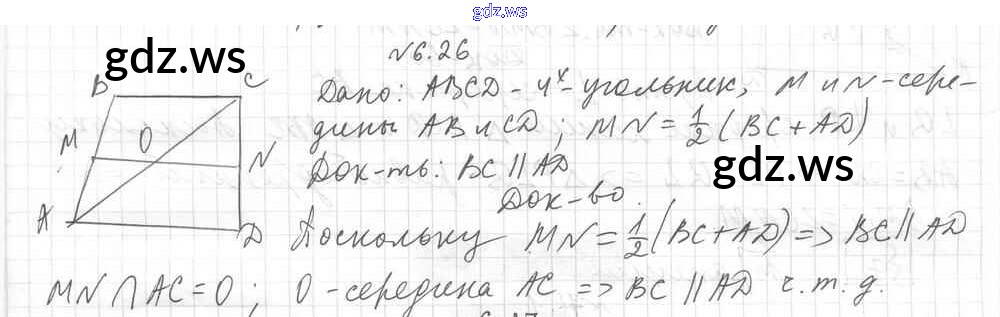 gdz.ws
gdz.ws
№6.26
Дано: ABCD - 4х-угольник, M и N-сере-
дины AB и CD; MN = 1/2 (BC + AD)
gdz.ws
Док-ть: BC || AD
Док-во.
Поскольку MN = 1/2 (BC + AD) => BC || AD
MN ∩ AC = O; O - середина AC => BC || AD ч.т.д.
B C
M O N
A D